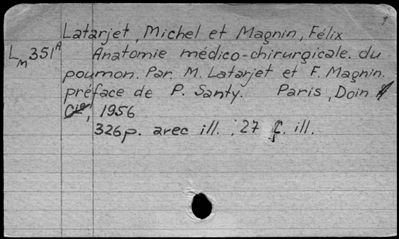 Latarjet, Michel et Magnin, Félix
LM 351A Anatomie médico-chirurgicale du
poumon. Par M. Latarjet et F. Magnin.
préface de P. Santy. Paris, Doin &
Cie, 1956
326p. avec ill. ; 27 f. ill.